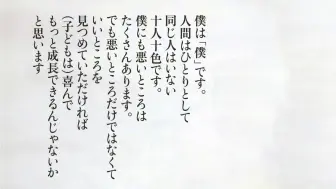 僕は「僕」です。
人間はひとりとして
同じ人はいない
十人十色です。
僕にも悪いところは
たくさんあります。
でも悪いところだけではなくて
いいところを
見つめていただければ
(子どもは)喜んで
もっと成長できるんじゃないか
と思います